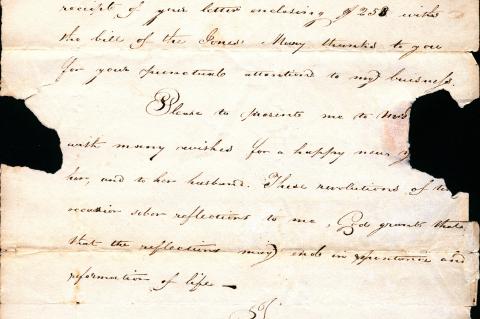 receipt of your letter enclosing $258 with
the bill of the Jones. Many thanks to you
for your punctual attention to my buisness.
Please to presente me to Mrs
with many wishes for a happy new y
her, and to her husband. These revolutions of
occasion sober reflections to me, God grante that
that the reflections may ends in repentance and
reformation of life —